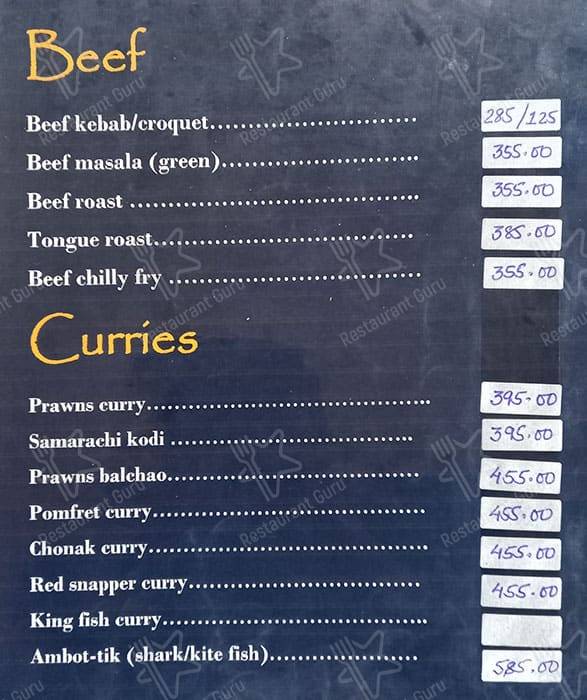 Beef
Beef kebab/croquet.......................... 285/125
Beef masala (green)......................... 355.00
Beef roast .................................... 355.00
Tongue roast................................. 385.00
Beef chilly fry ................................ 355.00
Curries
Prawns curry................................... 395.00
Samarachi kodi .............................. 395.00
Prawns balchao............................... 455.00
Pomfret curry................................. 455.00
Chonak curry.................................. 455.00
Red snapper curry............................ 455.00
King fish curry................................
Ambot-tik (shark/kite fish)................... 585.00
Restaurant Guru